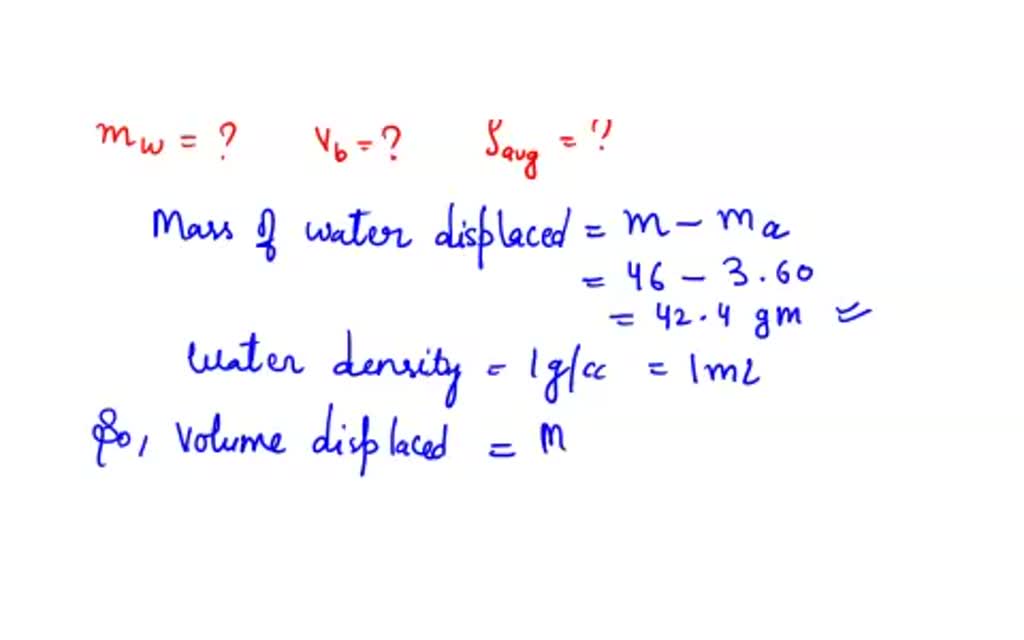 m_w = ? V_b = ? ρ_avg = ?
Mass of water displaced = m - m_a
= 46 - 3.60
= 42.4 gm
Water density = 1g/cc = 1mL
So, Volume displaced = m